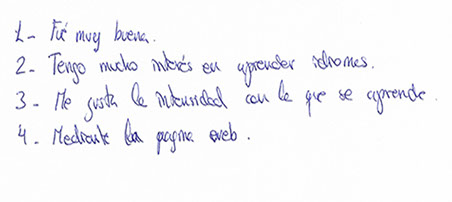 1- Fué muy buena.
2- Tengo mucho interés en aprender idiomas.
3- Me gusta la intensidad con la que se aprende.
4- Mediante la pagina web.